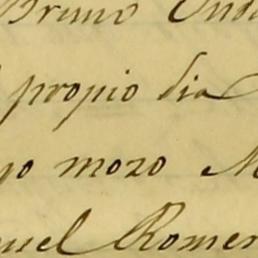 Bruno Ond
propio dia
go mozo M
uel Romer